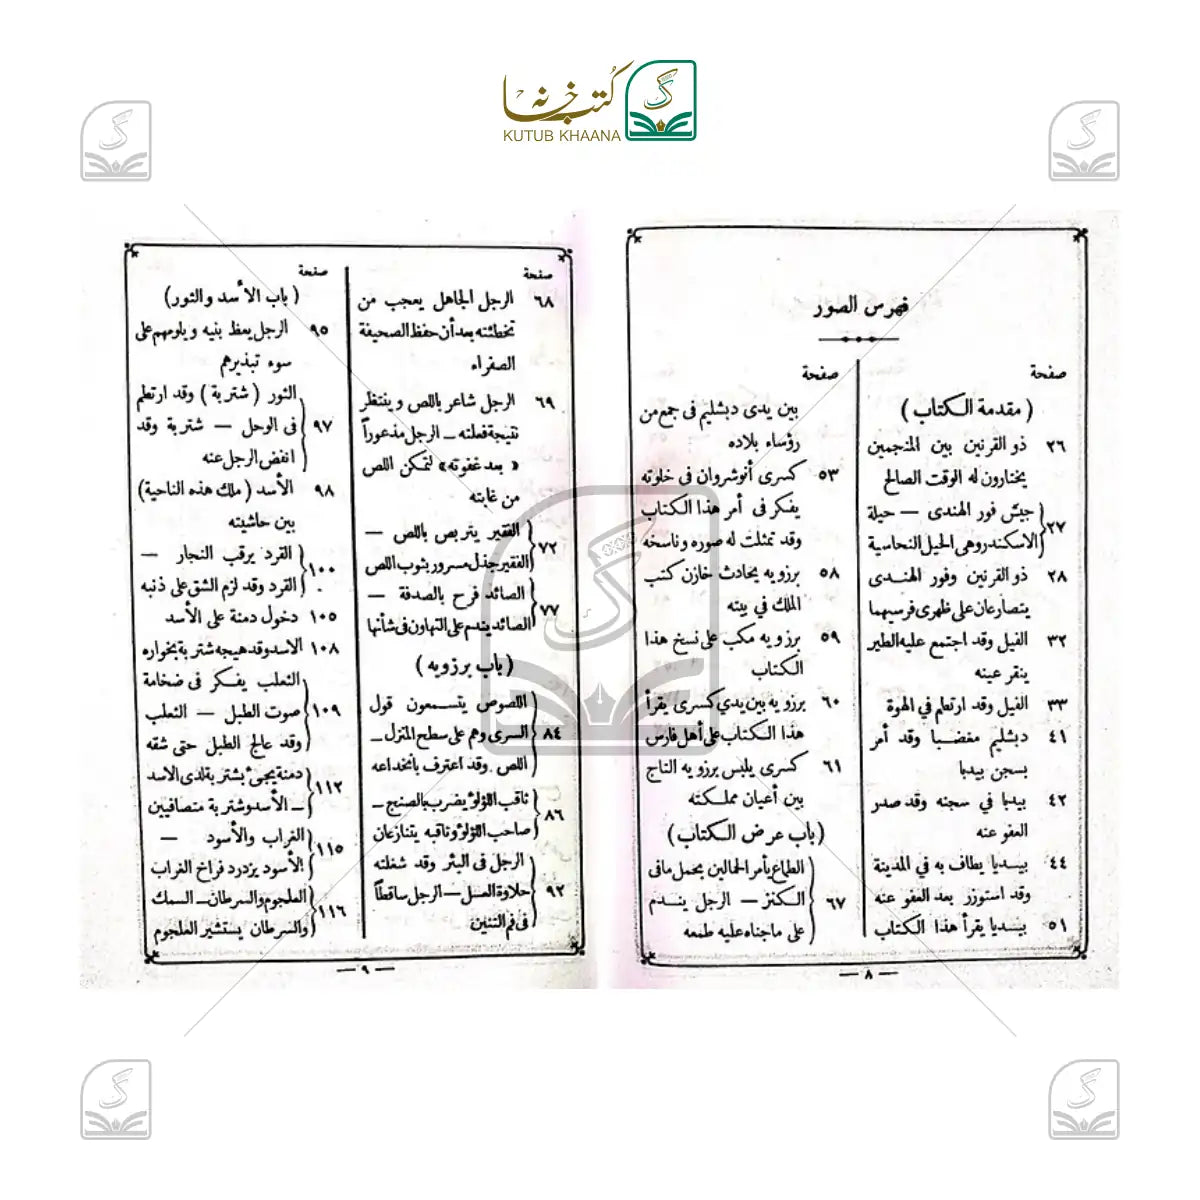 كتب خانه
KUTUB KHAANA
فهرس الصور
صفحة
(مقدمة الكتاب)
٢٦ ذو القرنين بين المنجمين
يختارون له الوقت الصالح
٢٧ جيش فور الهندى — حيلة
الاسكندر وهى الخيل النحاسية
٢٨ ذو القرنين وفور الهندى
يتصارعان على ظهرى فرسيهما
٣٢ الفيل وقد اجتمع عليه الطير
ينقر عينه
٣٣ الفيل وقد ارتطم في الهوة
٤١ دبشليم مغضبا وقد أمر
بسجن بيدبا
٤٢ بيدبا في سجنه وقد صدر
العفو عنه
٤٤ بيدبا يطاف به في المدينة
وقد استوزر بعد العفو عنه
٥١ بيدبا يقرأ هذا الكتاب
صفحة
بين يدى دبشليم فى جمع من
رؤساء بلاده
٥٣ كسرى أنوشروان فى خلوته
يفكر فى أمر هذا الكتاب
وقد تمثلت له صوره وناسخه
٥٨ برزويه يحادث خازن كتب
الملك في بيته
٥٩ برزويه مكب على نسخ هذا
الكتاب
٦٠ برزويه بين يدي كسرى يقرأ
هذا الكتاب على أهل فارس
٦١ كسرى يلبس برزويه التاج
بين أعيان مملكته
(باب عرض الكتاب)
الطماع يأمر الحمالين بحمل مافى
٦٧ الكنز — الرجل يندم
على ماجناه عليه طمعه
— ٨ —
صفحة
٦٨ الرجل الجاهل يعجب من
تخطئته بعد أن حفظ الصحيفة
الصفراء
٦٩ الرجل شاعر باللص وينتظر
نتيجة فعلته — الرجل مذعوراً
«بعد غفوته» لتمكن اللص
من غايته
٧٢ الفقير يتربص باللص —
الفقير جذل مسرور بثوب اللص
٧٧ الصائد فرح بالصدفة —
الصائد يندم على التهاون فى شأنها
(باب برزويه)
اللصوص يتسمعون قول
٨٤ السرى وهم على سطح المنزل —
اللص وقد اعترف بانخداعه
٨٦ ثاقب اللؤلؤ يضرب بالصنج —
صاحب اللؤلؤ وثاقبه يتنازعان
الرجل فى البئر وقد شغلته
٩٢ حلاوة العسل — الرجل ساقطاً
فى فم التنين
صفحة
(باب الأسد والثور)
٩٥ الرجل يعظ بنيه ويلومهم على
سوء تبذيرهم
الثور (شتربة) وقد ارتطم
٩٧ فى الوحل — شتربة وقد
انفض الرجل عنه
٩٨ الأسد (ملك هذه الناحية)
بين حاشيته
١٠٠ القرد يرقب النجار —
القرد وقد لزم الشق على ذنبه
١٠٥ دخول دمنة على الأسد
١٠٨ الاسد وقد هيجه شتربة بخواره
الثعلب يفكر فى ضخامة
١٠٩ صوت الطبل — الثعلب
وقد عالج الطبل حتى شقه
١١٢ دمنة يجىء بشتربة لدى الاسد
— الأسد وشتربة متصافيين
١١٥ الغراب والأسود —
الأسود يزدرد فراخ الغراب
١١٦ العلجوم والسرطان — السمك
والسرطان يستشير العلجوم
— ٩ —